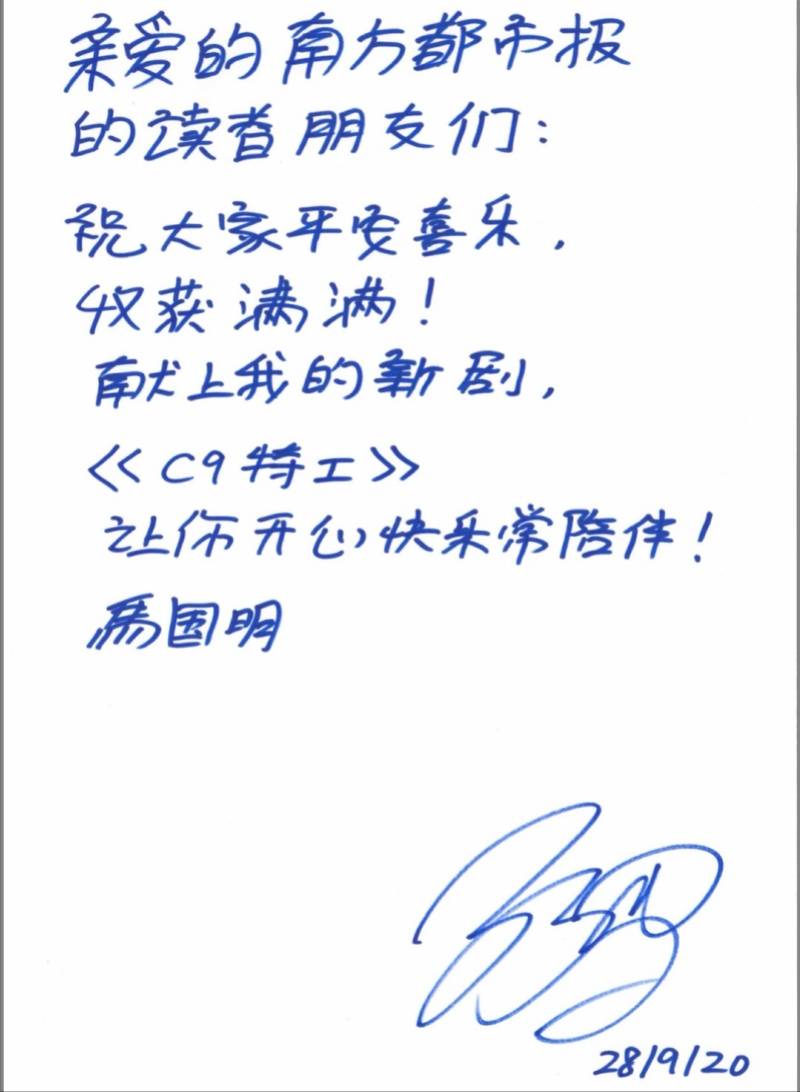 亲爱的南方都市报
的读者朋友们：
祝大家平安喜乐，
收获满满！
献上我的新剧，
《C9特工》
让你开心快乐常陪伴！
馬国明
28/9/20